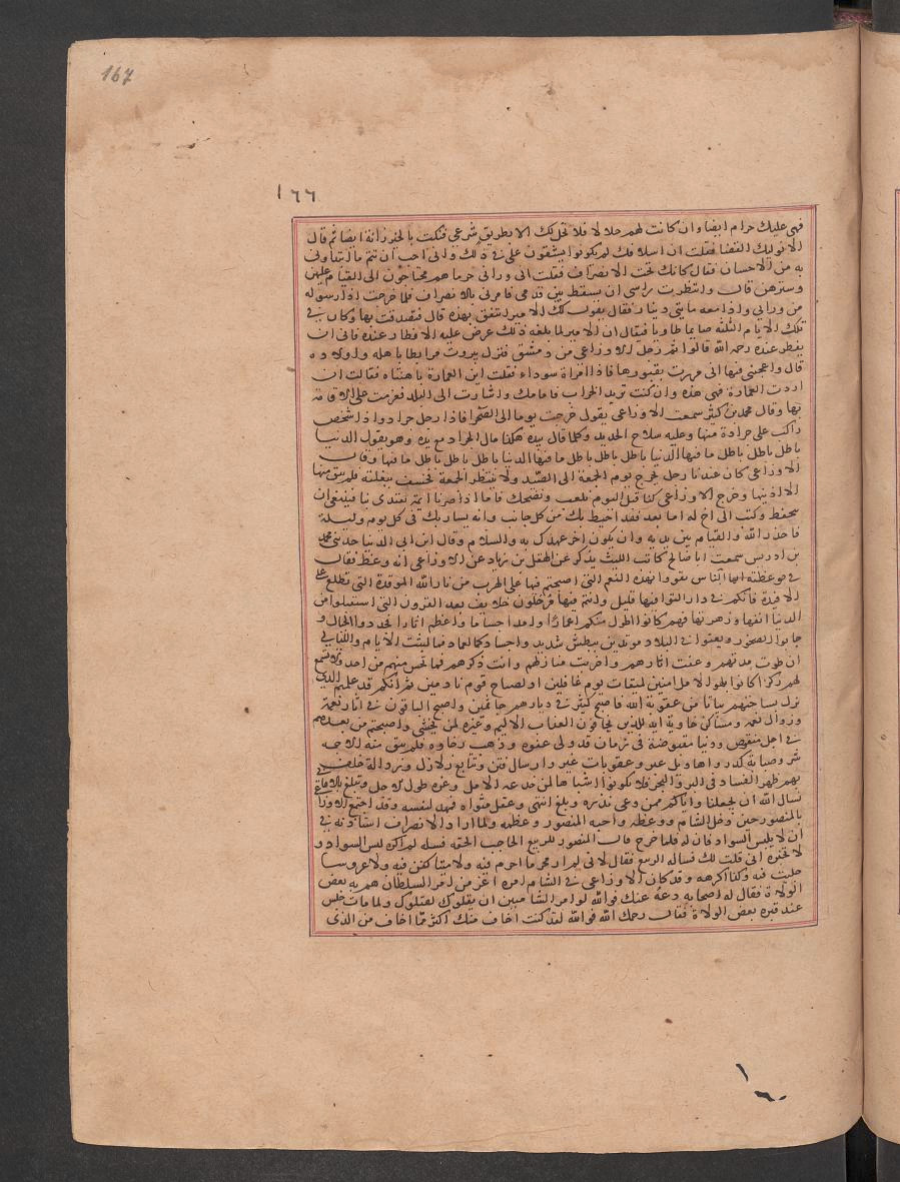 167
١٦٦
فهي عليك حرام ايضا وان كانت لهم حلالا فلا تحل لك الا بطريق شرعي فنكت بالخيزرانة ايضا ثم قال
الا نوليك القضا فقلت ان اسلافك لم يكونوا يشقون علي في ذلك واني احب ان تتم ما ابتداوني
به من الاحسان فقال كانك تحب الانصراف فقلت اني وراني حرما هم محتاجون الى القيام عليهن
وسترهن قال وانتظرت براسي ان يسقط بين قدمي فامرني بالانصراف فلما خرجت اذا رسوله
من وراي واذا معه مايتي دينار فقال يقول لك الامير استنفق بهذه قال فتصدقت بها وكان في
تلك الايام الثلثه صايما طاويا فيقال ان الامير لما بلغه ذلك عرض عليه الافطار عنده فابى ان
يفطر عنده رحمه الله قالوا ثم رحل الاوزاعي من دمشق فنزل بيروت مرابطا باهله واولاده
قال واعجبني فيها اني مررت بقبورها فاذا امراة سوداء فقلت اين العمارة يا هنتاه فقالت ان
اردت العمارة فهي هذه وان كنت تريد الخراب فامامك واشارت الى البلد فعزمت على الاقامة
بها وقال محمد بن كثير سمعت الاوزاعي يقول خرجت يوما الى الصحرا فاذا رجل جراد واذا شخص
راكب على جرادة منها وعليه سلاح الحديد وكلما قال بيده هكذا مال الجراد مع يده وهو يقول الدنيا
باطل باطل باطل ما فيها الدنيا باطل باطل باطل ما فيها الدنيا باطل باطل باطل ما فيها وقال
الاوزاعي كان عندنا رجل يخرج يوم الجمعة الى الصيد ولا ينتظر الجمعة فخسف ببغلته فلم يبق منها
الا اذنيها وخرج الاوزاعي كنا قبل اليوم نلعب ونضحك فاما اذا صرنا ائمة يقتدى بنا فينبغي ان
نتحفظ وكتب الى اخ له اما بعد فقد احيط بك من كل جانب وانه يسار بك في كل يوم وليلة
فاحذر الله والقيام بين يديه وان يكون اخر عهدك به والسلام وقال ابن ابي الدنيا حدثني محمد
بن ادريس سمعت ابا صالح كاتب الليث يذكر عن الهقل بن زياد عن الاوزاعي انه وعظ فقال
في موعظته ايها الناس تقووا بهذه النعم التي اصبحتم فيها على الهرب من نار الله الموقدة التي تطلع على
الافيدة فانكم في دار الثوا فيها قليل وانتم فيها مرحلون خلايف بعد القرون التي استقبلوا من
الدنيا انفها وزهرتها فهم كانوا اطول منكم اعمارا وامد اجساما واعظم اثارا فخددوا الجبال و
جابوا الصخور ونقبوا في البلاد مويدين ببطش شديد واجساد كالعماد فما لبثت الايام والليالي
ان طوت مدتهم وعفت اثارهم واخربت منازلهم وانست ذكرهم فما تحس منهم من احد ولا تسمع
لهم ركزا كانوا بلهو الامل امنين لميقات يوم غافلين او لصباح قوم نادمين ثم انكم قد علمتم الذي
نزل بساحتهم بياتا من عقوبة الله فاصبح كثير في ديارهم جاثمين واصبح الباقون في اثار نعمة
وزوال نعم ومساكن خاوية اية للذين يخافون العذاب الاليم وعبرة لمن يخشى واصبحتم من بعدهم
في اجل منقوص ودنيا مقبوضة في زمان قد ولى عفوه وذهب رخاوه فلم يبق منه الا حمه
شر وصبابة كدر واهاويل عبر وعقوبات غير وارسال فتن وتتابع زلازل ورذالة خلف
بهم ظهر الفساد في البر والبحر فلا تكونوا اشباها لمن خدعه الامل وغره طول الاجل وتبلغ بالاماني
نسال الله ان يجعلنا واياكم ممن وعى نذره وبلغ انتهى وعقل مثواه فمهد لنفسه وقد اجتمع الاوزاعي
بالمنصور حين دخل الشام ووعظه واحبه المنصور وعظمه ولما اراد الانصراف استاذنه في
ان لا يلبس السواد فاذن له فلما خرج قال المنصور للربيع الحاجب الحقه فسله لم اكره لبس السواد و
لا تخبره اني قلت لك فساله الربيع فقال لاني لم ار محرما احرم فيه ولا ميتا كفن فيه ولا عروسا
جليت فيه فلهذا اكرهه وقد كان الاوزاعي في الشام امره اعز من امر السلطان هم به بعض
الولاة فقال له اصحابه دعه عنك فوالله لو امر الشاميين ان يقتلوك لقتلوك ولما مات جلس
عند قبره بعض الولاة فقال رحمك الله فوالله لقد كنت اخاف منك اكثر مما اخاف من الذي